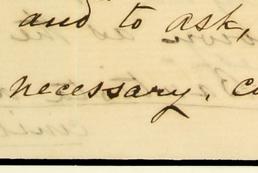 and to ask,
necessary, c